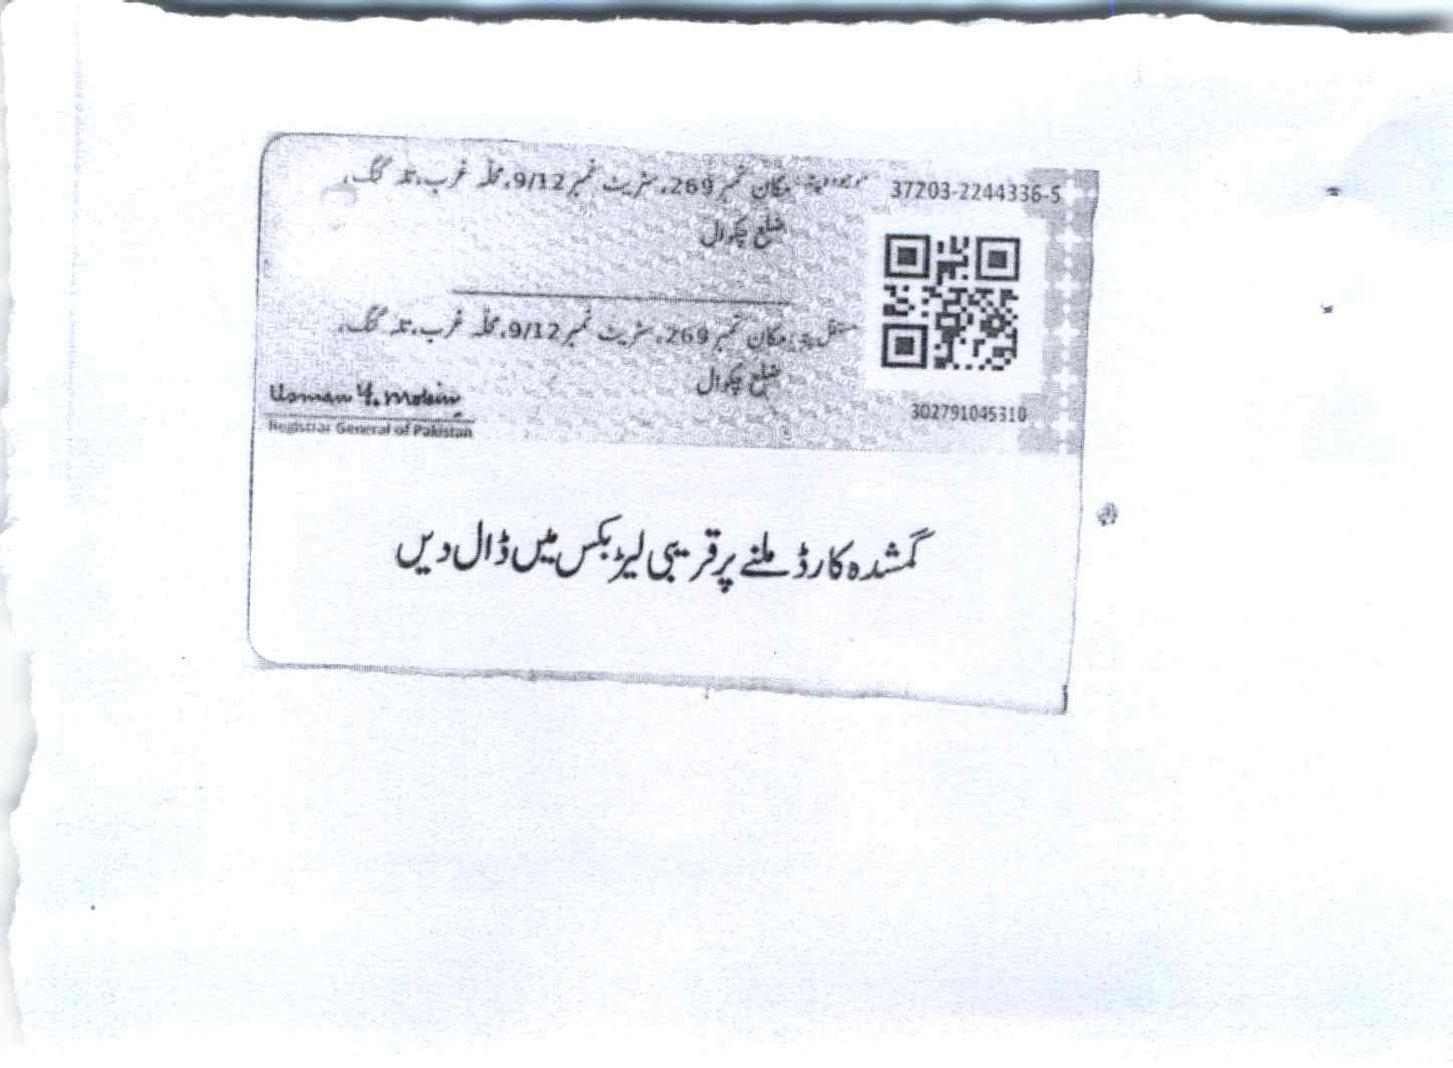 37203-2244336-5
موجودہ پتہ: مکان نمبر 269، سٹریٹ نمبر 9/12، محلہ غرب، تلہ گنگ،
ضلع چکوال
مستقل پتہ: مکان نمبر 269، سٹریٹ نمبر 9/12، محلہ غرب، تلہ گنگ،
ضلع چکوال
302791045310
Usman Y. Mobin
Registrar General of Pakistan
گمشدہ کارڈ ملنے پر قریبی لیٹر بکس میں ڈال دیں